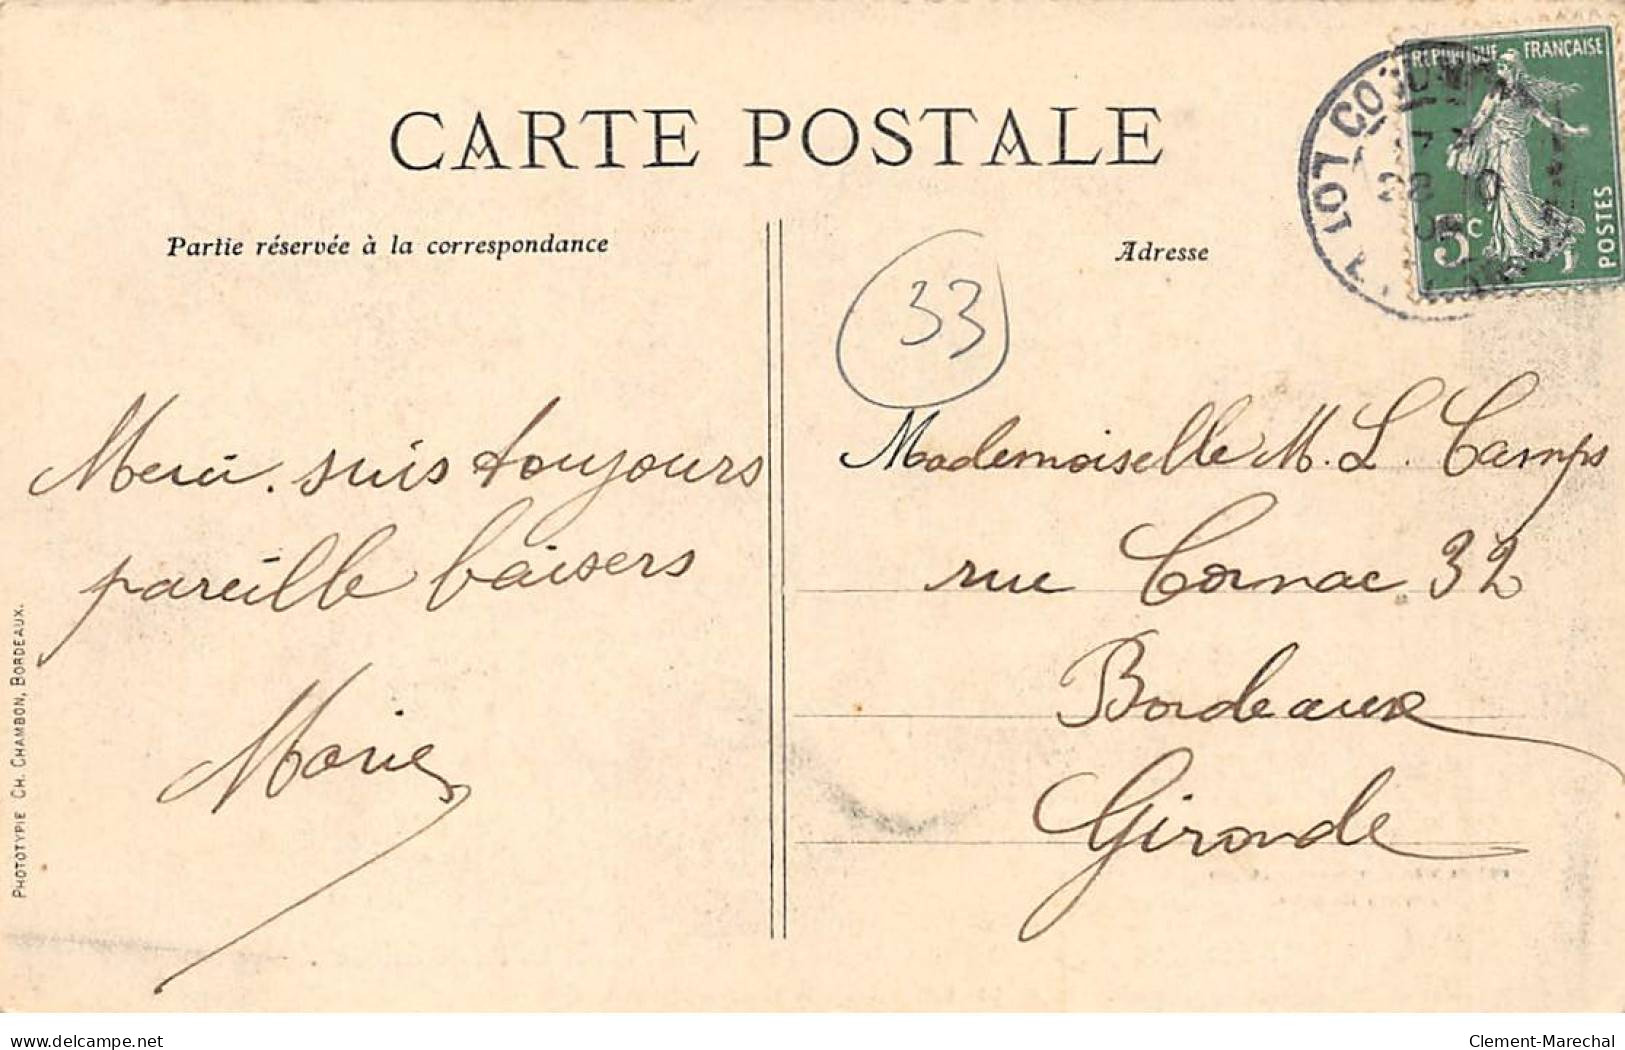 CARTE POSTALE
Partie réservée à la correspondance
Adresse
RÉPUBLIQUE FRANÇAISE
5c
POSTES
28
33
Merci. suis toujours
pareille baisers
Marie
Mademoiselle M. L. Camps
rue Cornac 32
Bordeaux
Gironde
PHOTOTYPIE CH. CHAMBON, BORDEAUX.
www.delcampe.net
Clement-Marechal